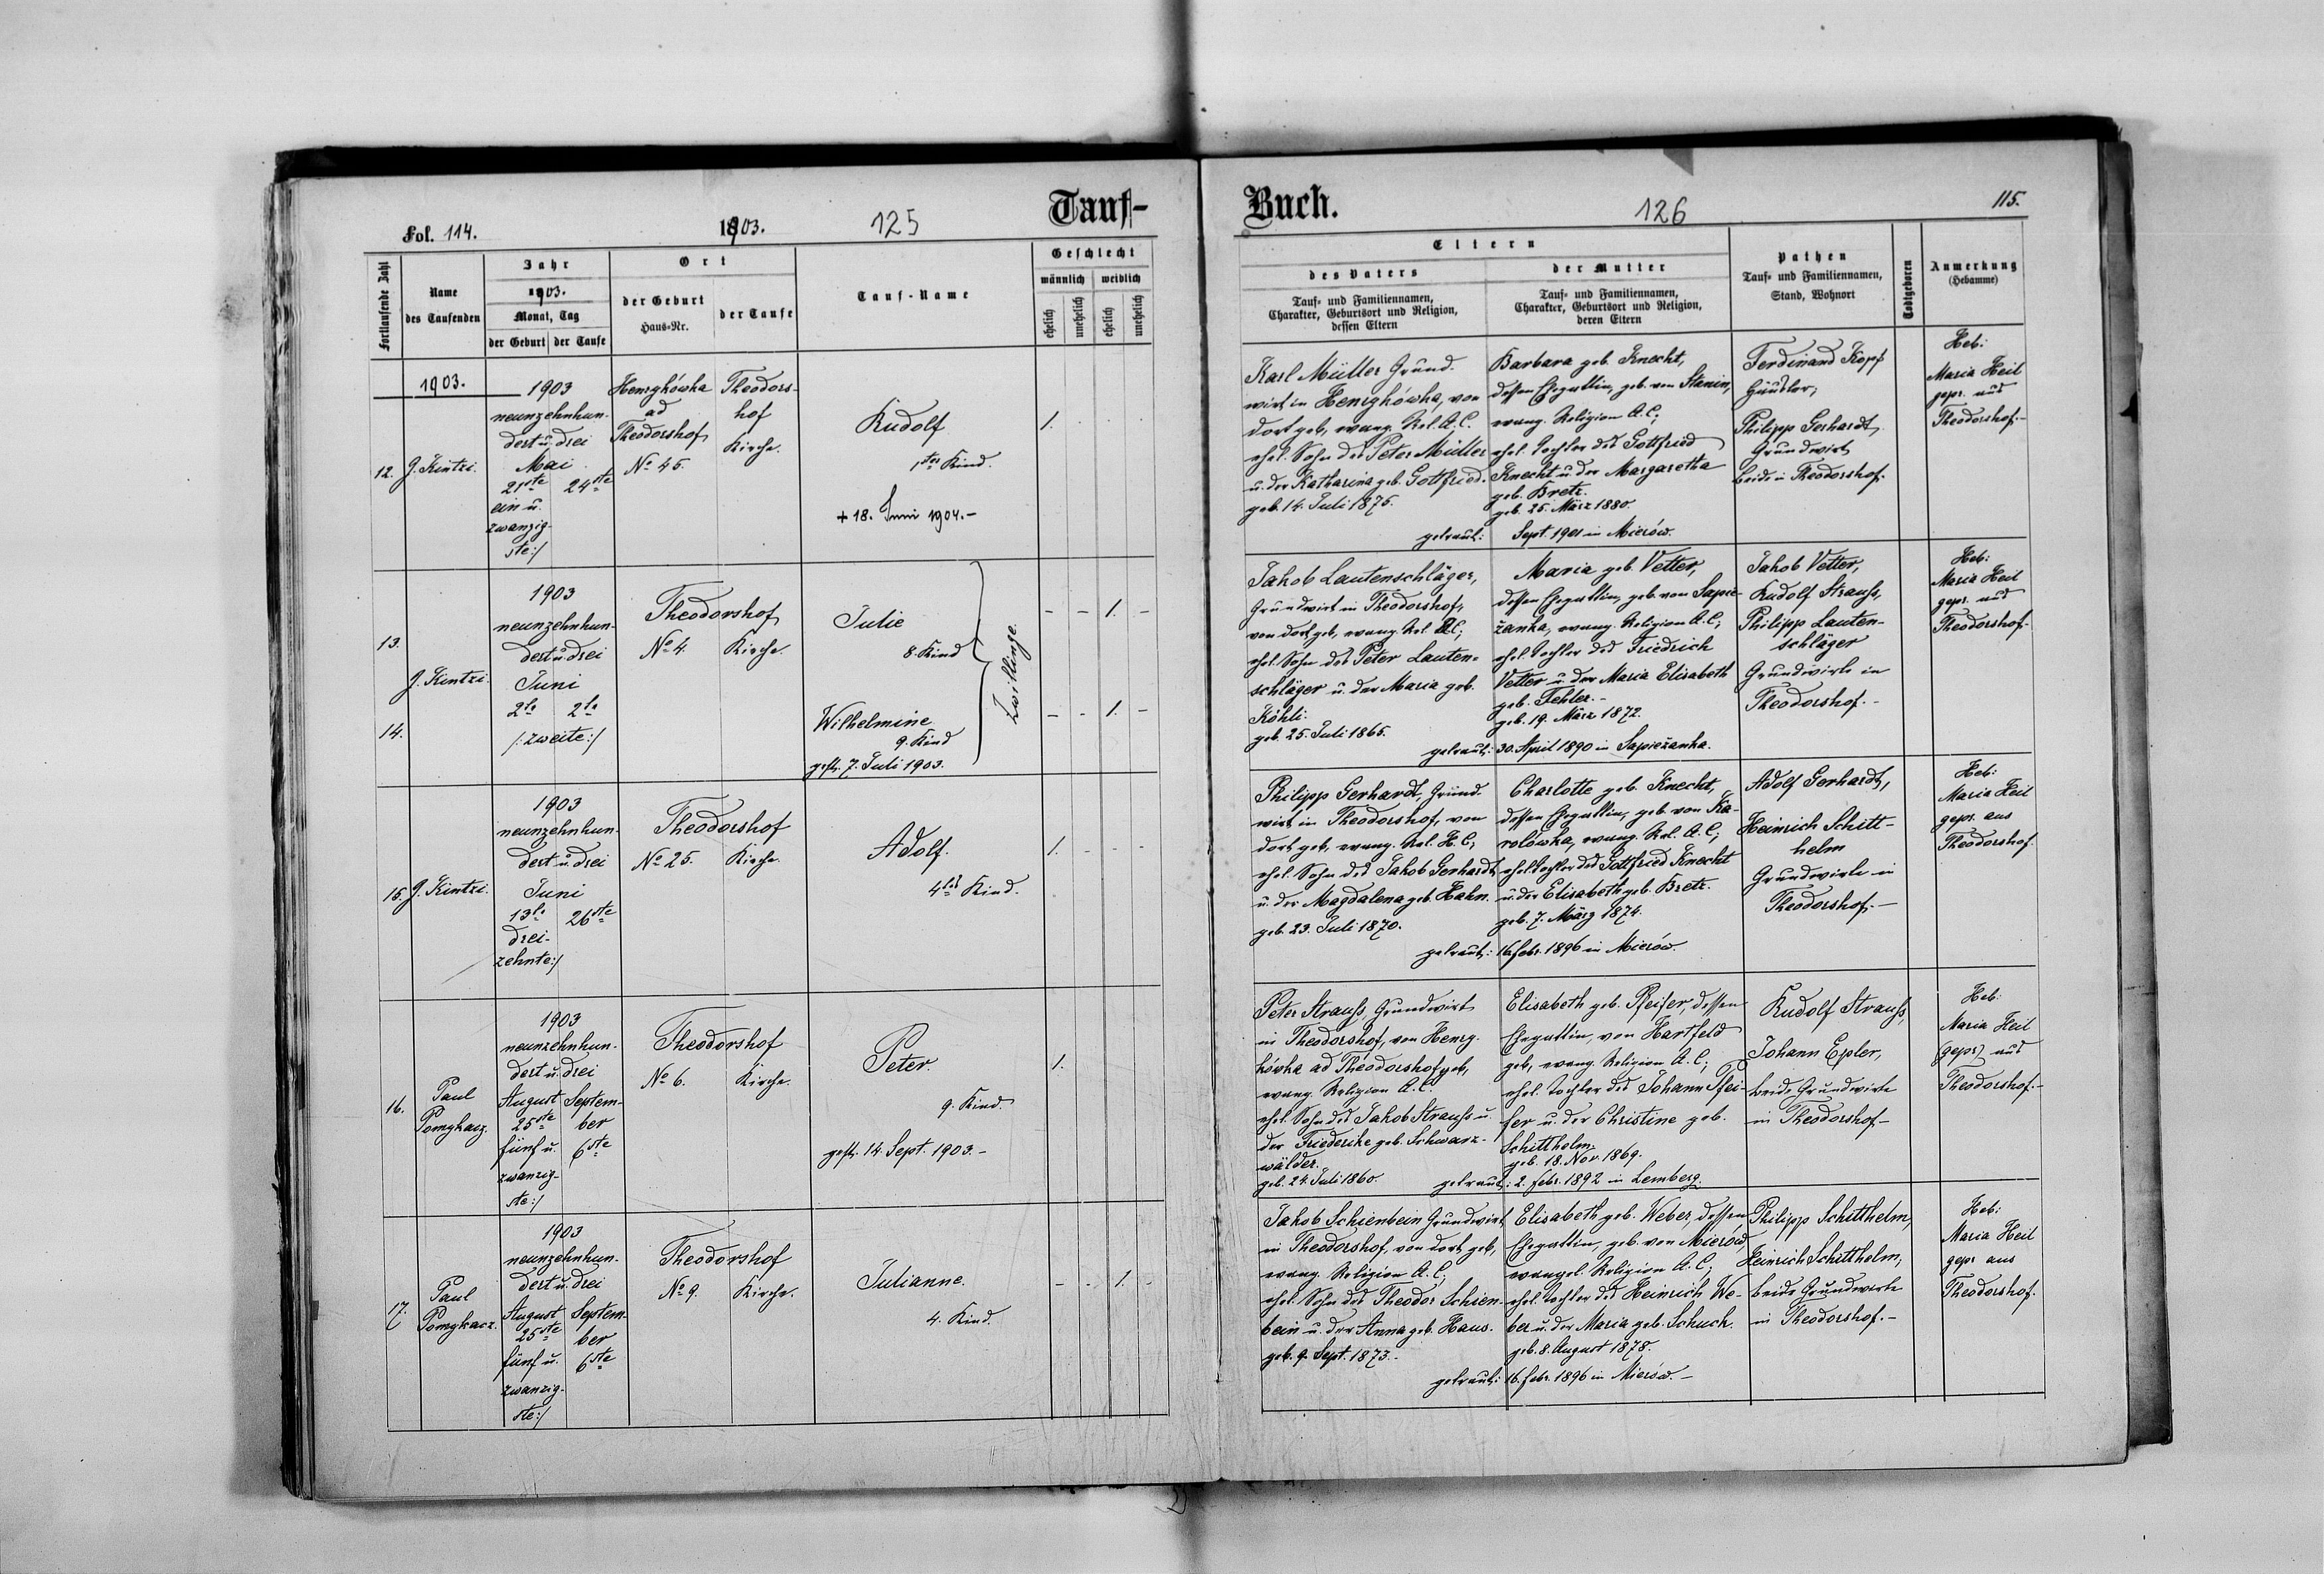 Fol. 114.
1903.
125
Tauf-
Fortlaufende Zahl
Name
des Taufenden
Jahr
1903.
Monat, Tag
der Geburt
der Taufe
Ort
der Geburt
Haus-Nr.
der Taufe
Tauf-Name
Geschlecht
männlich
weiblich
ehelich
unehelich
ehelich
unehelich
1903.
12.
J. Kintzi.
1903
neunzehnhun-
dert u. drei
Mai
21ste 24ste
ein u.
zwanzig-
ste:/
Henrykówka
ad
Theodorshof
No 45.
Theodors-
hof
Kirche.
Rudolf
1tes Kind.
+ 18. Juni 1904.-
1.
13.
14.
J. Kintzi.
1903
neunzehnhun-
dert u. drei
Juni
2te 2te
/: zweite:/
Theodorshof
No 4. Kirche.
Julie
8. Kind
Wilhelmine
9. Kind
gest. 7. Juli 1903.
Zwillinge.
- - 1. -
- - 1. -
15.
J. Kintzi.
1903
neunzehnhun-
dert u. drei
Juni
13te 26ste
drei-
zehnte:/
Theodorshof
No 25. Kirche.
Adolf.
4tes Kind.
1. - - -
16.
Paul
Pomykacz.
1903
neunzehnhun-
dert u. drei
August Septem-
25ste ber
fünf u. 6ste
zwanzig-
ste:/
Theodorshof
No 6. Kirche.
Peter.
9. Kind.
gest. 14. Sept. 1903.-
1.
17.
Paul
Pomykacz.
1903
neunzehnhun-
dert u. drei
August Septem-
25ste ber
fünf u. 6ste
zwanzig-
ste:/
Theodorshof
No 9. Kirche.
Julianne.
4. Kind.
- - 1. -
Buch.
126
115.
Eltern
des Vaters
Tauf- und Familiennamen,
Charakter, Geburtsort und Religion,
dessen Eltern
der Mutter
Tauf- und Familiennamen,
Charakter, Geburtsort und Religion,
deren Eltern
Pathen
Tauf- und Familiennamen,
Stand, Wohnort
Todtgeboren
Anmerkung
(Hebamme)
Karl Müller Grund-
wirt in Henrykówka, von
dort geb., evang. Rel. A. C.
ehel. Sohn des Peter Müller
u. der Katharina geb. Gottfried.
geb. 14. Juli 1875.
Barbara geb. Knecht,
dessen Ehegattin, geb. von Stanin,
evang. Religion A. C.;
ehel. Tochter des Gottfried
Knecht u. der Margaretha
geb. Bretz.
geb. 25. März 1880.
getraut: Sept. 1901 in Mierów.
Ferdinand Kopf
Häusler,
Philipp Gerhardt,
Grundwirt,
beide in Theodorshof.
Heb:
Maria Heil
gepr. aus
Theodorshof.-
Jakob Lautenschläger,
Grundwirt in Theodorshof,
von dort geb., evang. Rel. A. C.;
ehel. Sohn des Peter Lauten-
schläger u. der Maria geb.
Köhli.
geb. 25. Juli 1865.
Maria geb. Vetter,
dessen Ehegattin, geb. von Sapie-
żanka, evang. Religion A. C.;
ehel. Tochter des Friedrich
Vetter u. der Maria Elisabeth
geb. Fehler.-
geb. 19. März 1872.
getraut: 30. April 1890 in Sapieżanka.
Jakob Vetter,
Rudolf Strauß,
Philipp Lauten-
schläger
Grundwirte in
Theodorshof.-
Heb:
Maria Heil
gepr. aus
Theodorshof.
Philipp Gerhardt, Grund-
wirt in Theodorshof, von
dort geb., evang. Rel. H. C.;
ehel. Sohn des Jakob Gerhardt
u. der Magdalena geb. Hahn.
geb. 23. Juli 1870.
Charlotte geb. Knecht,
dessen Ehegattin, geb. von Ka-
rolówka, evang. Rel. A. C.;
ehel. Tochter des Gottfried Knecht
u. der Elisabeth geb. Bretz.
geb. 7. März 1874.
getraut: 16. Febr. 1896 in Mierów.
Adolf Gerhardt,
Heinrich Schitt-
helm
Grundwirte in
Theodorshof.-
Heb:
Maria Heil
gepr. aus
Theodorshof.
Peter Strauß, Grundwirt
in Theodorshof, von Henry-
kówka ad Theodorshof geb.,
evang. Religion A. C.
ehel. Sohn des Jakob Strauß u.
der Friederike geb. Schwarz-
wälder.
geb. 24. Juli 1860.
Elisabeth geb. Pfeifer, dessen
Ehegattin, von Hartfeld
geb., evang. Religion A. C.;
ehel. Tochter des Johann Pfei-
fer u. der Christine geb.
Schitthelm.
geb. 18. Nov. 1869.
getraut: 2. Febr. 1892 in Lemberg.
Rudolf Strauß,
Johann Epler,
beide Grundwirte
in Theodorshof.-
Heb:
Maria Heil
(gepr.) aus
Theodorshof.-
Jakob Schienbein Grundwirt
in Theodorshof, von dort geb.,
evang. Religion A. C.;
ehel. Sohn des Theodor Schien-
bein u. der Anna geb. Haus.
geb. 9. Sept. 1873.-
Elisabeth geb. Weber, dessen
Ehegattin, geb. von Mierów,
evangel. Religion A. C.;
ehel. Tochter des Heinrich We-
ber u. der Maria geb. Schuch.
geb. 8. August 1878.
getraut: 16. Febr. 1896 in Mierów.-
Philipp Schitthelm,
Heinrich Schitthelm,
beide Grundwirte
in Theodorshof.-
Heb:
Maria Heil
gepr. aus
Theodorshof.